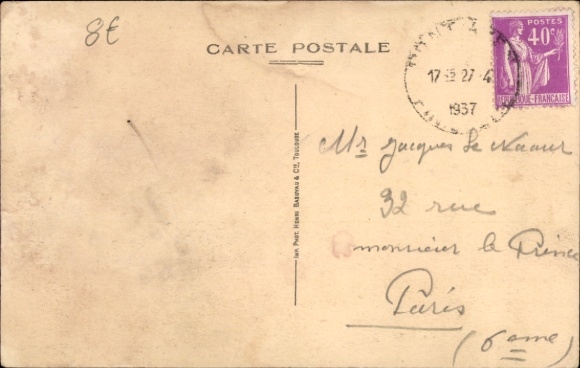 8€
CARTE POSTALE
POSTES
40c
RÉPUBLIQUE-FRANÇAISE
17 27-4
1937
Imp. Phot. Henri Basuyau & Cie, Toulouse
Mr Jacques Le
32 rue
monsieur le Prince
Paris
(6eme)